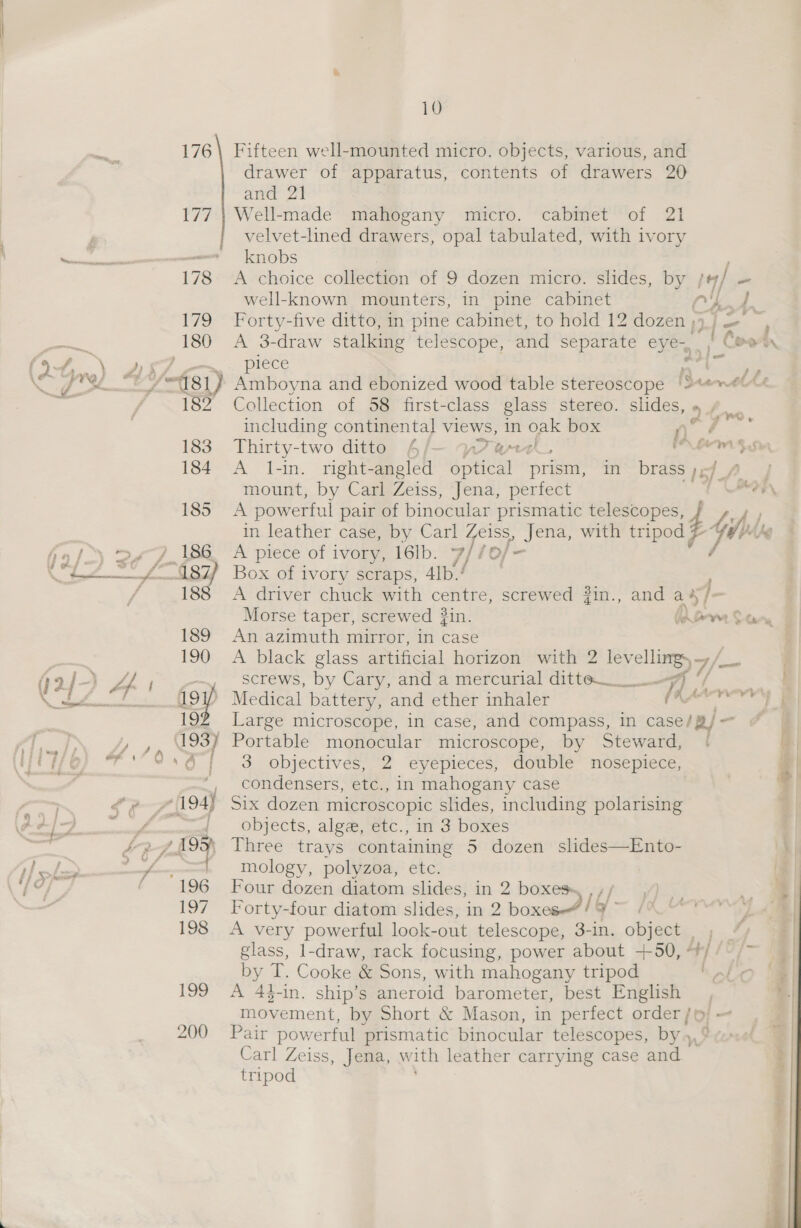 10
176 Fifteen well-mounted micro. objects, various, and
drawer of apparatus, contents of drawers 20
and 21
177 Well-made mahogany micro. cabinet of 21
velvet-lined drawers, opal tabulated, with ivory
knobs
178 A choice collection of 9 dozen micro. slides, by
well-known mounters, in pine cabinet
179 Forty-five ditto, in pine cabinet, to hold 12 dozen
180 A 3-draw stalking telescope, and separate eye-
piece
181 Amboyna and ebonized wood table stereoscope
182 Collection of 58 first-class glass stereo. slides,
including continental views, in oak box
183 Thirty-two ditto 6/-
184 A 1-in. right-angled optical prism, in brass
mount, by Carl Zeiss, Jena, perfect
185 A powerful pair of binocular prismatic telescopes,
in leather case, by Carl Zeiss, Jena, with tripod
186 A piece of ivory, 16lb. 7/10/-
187 Box of ivory scraps, 4lb.
188 A driver chuck with centre, screwed ¾in., and a
Morse taper, screwed ¾in.
189 An azimuth mirror, in case
190 A black glass artificial horizon with 2 levelling
screws, by Cary, and a mercurial ditto
191 Medical battery, and ether inhaler
192 Large microscope, in case, and compass, in case
193 Portable monocular microscope, by Steward,
3 objectives, 2 eyepieces, double nosepiece,
condensers, etc., in mahogany case
194 Six dozen microscopic slides, including polarising
objects, algæ, etc., in 3 boxes
195 Three trays containing 5 dozen slides—Ento-
mology, polyzoa, etc.
196 Four dozen diatom slides, in 2 boxes
197 Forty-four diatom slides, in 2 boxes
198 A very powerful look-out telescope, 3-in. object
glass, 1-draw, rack focusing, power about +50,
by T. Cooke & Sons, with mahogany tripod
199 A 4½-in. ship's aneroid barometer, best English
movement, by Short & Mason, in perfect order
200 Pair powerful prismatic binocular telescopes, by
Carl Zeiss, Jena, with leather carrying case and
tripod